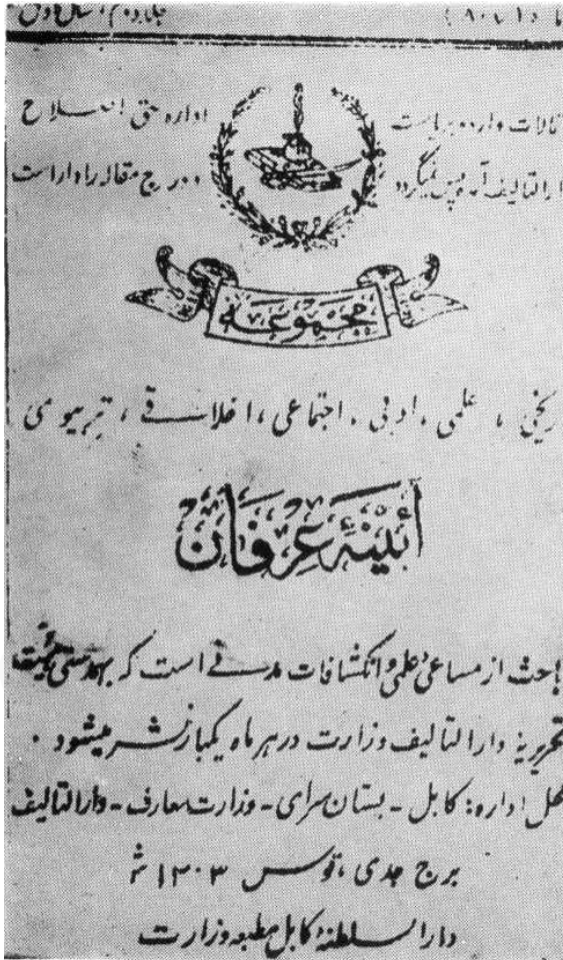 جلد دوم، سال اول
مقالات وارده بریاست اداره حق اصلاح
دارالتالیف آمده پس نمیگردد و درج مقاله را دار است
مجموعه
تاریخی ، علمی ، ادبی ، اجتماعی ، اخلاقی ، تربیوی
آئینهٔ عرفان
باحث از مساعیٔ علمی و انکشافات مدنی است که بهمدستی هیئت
تحریریهٔ دارالتالیف وزارت در هر ماه یکبار نشر میشود .
محل اداره : کابل - بستان سرای - وزارت معارف - دارالتالیف
برج جدی ، قوس ۱۳۰۳ ش
دارالسلطنهٔ کابل مطبعه وزارت